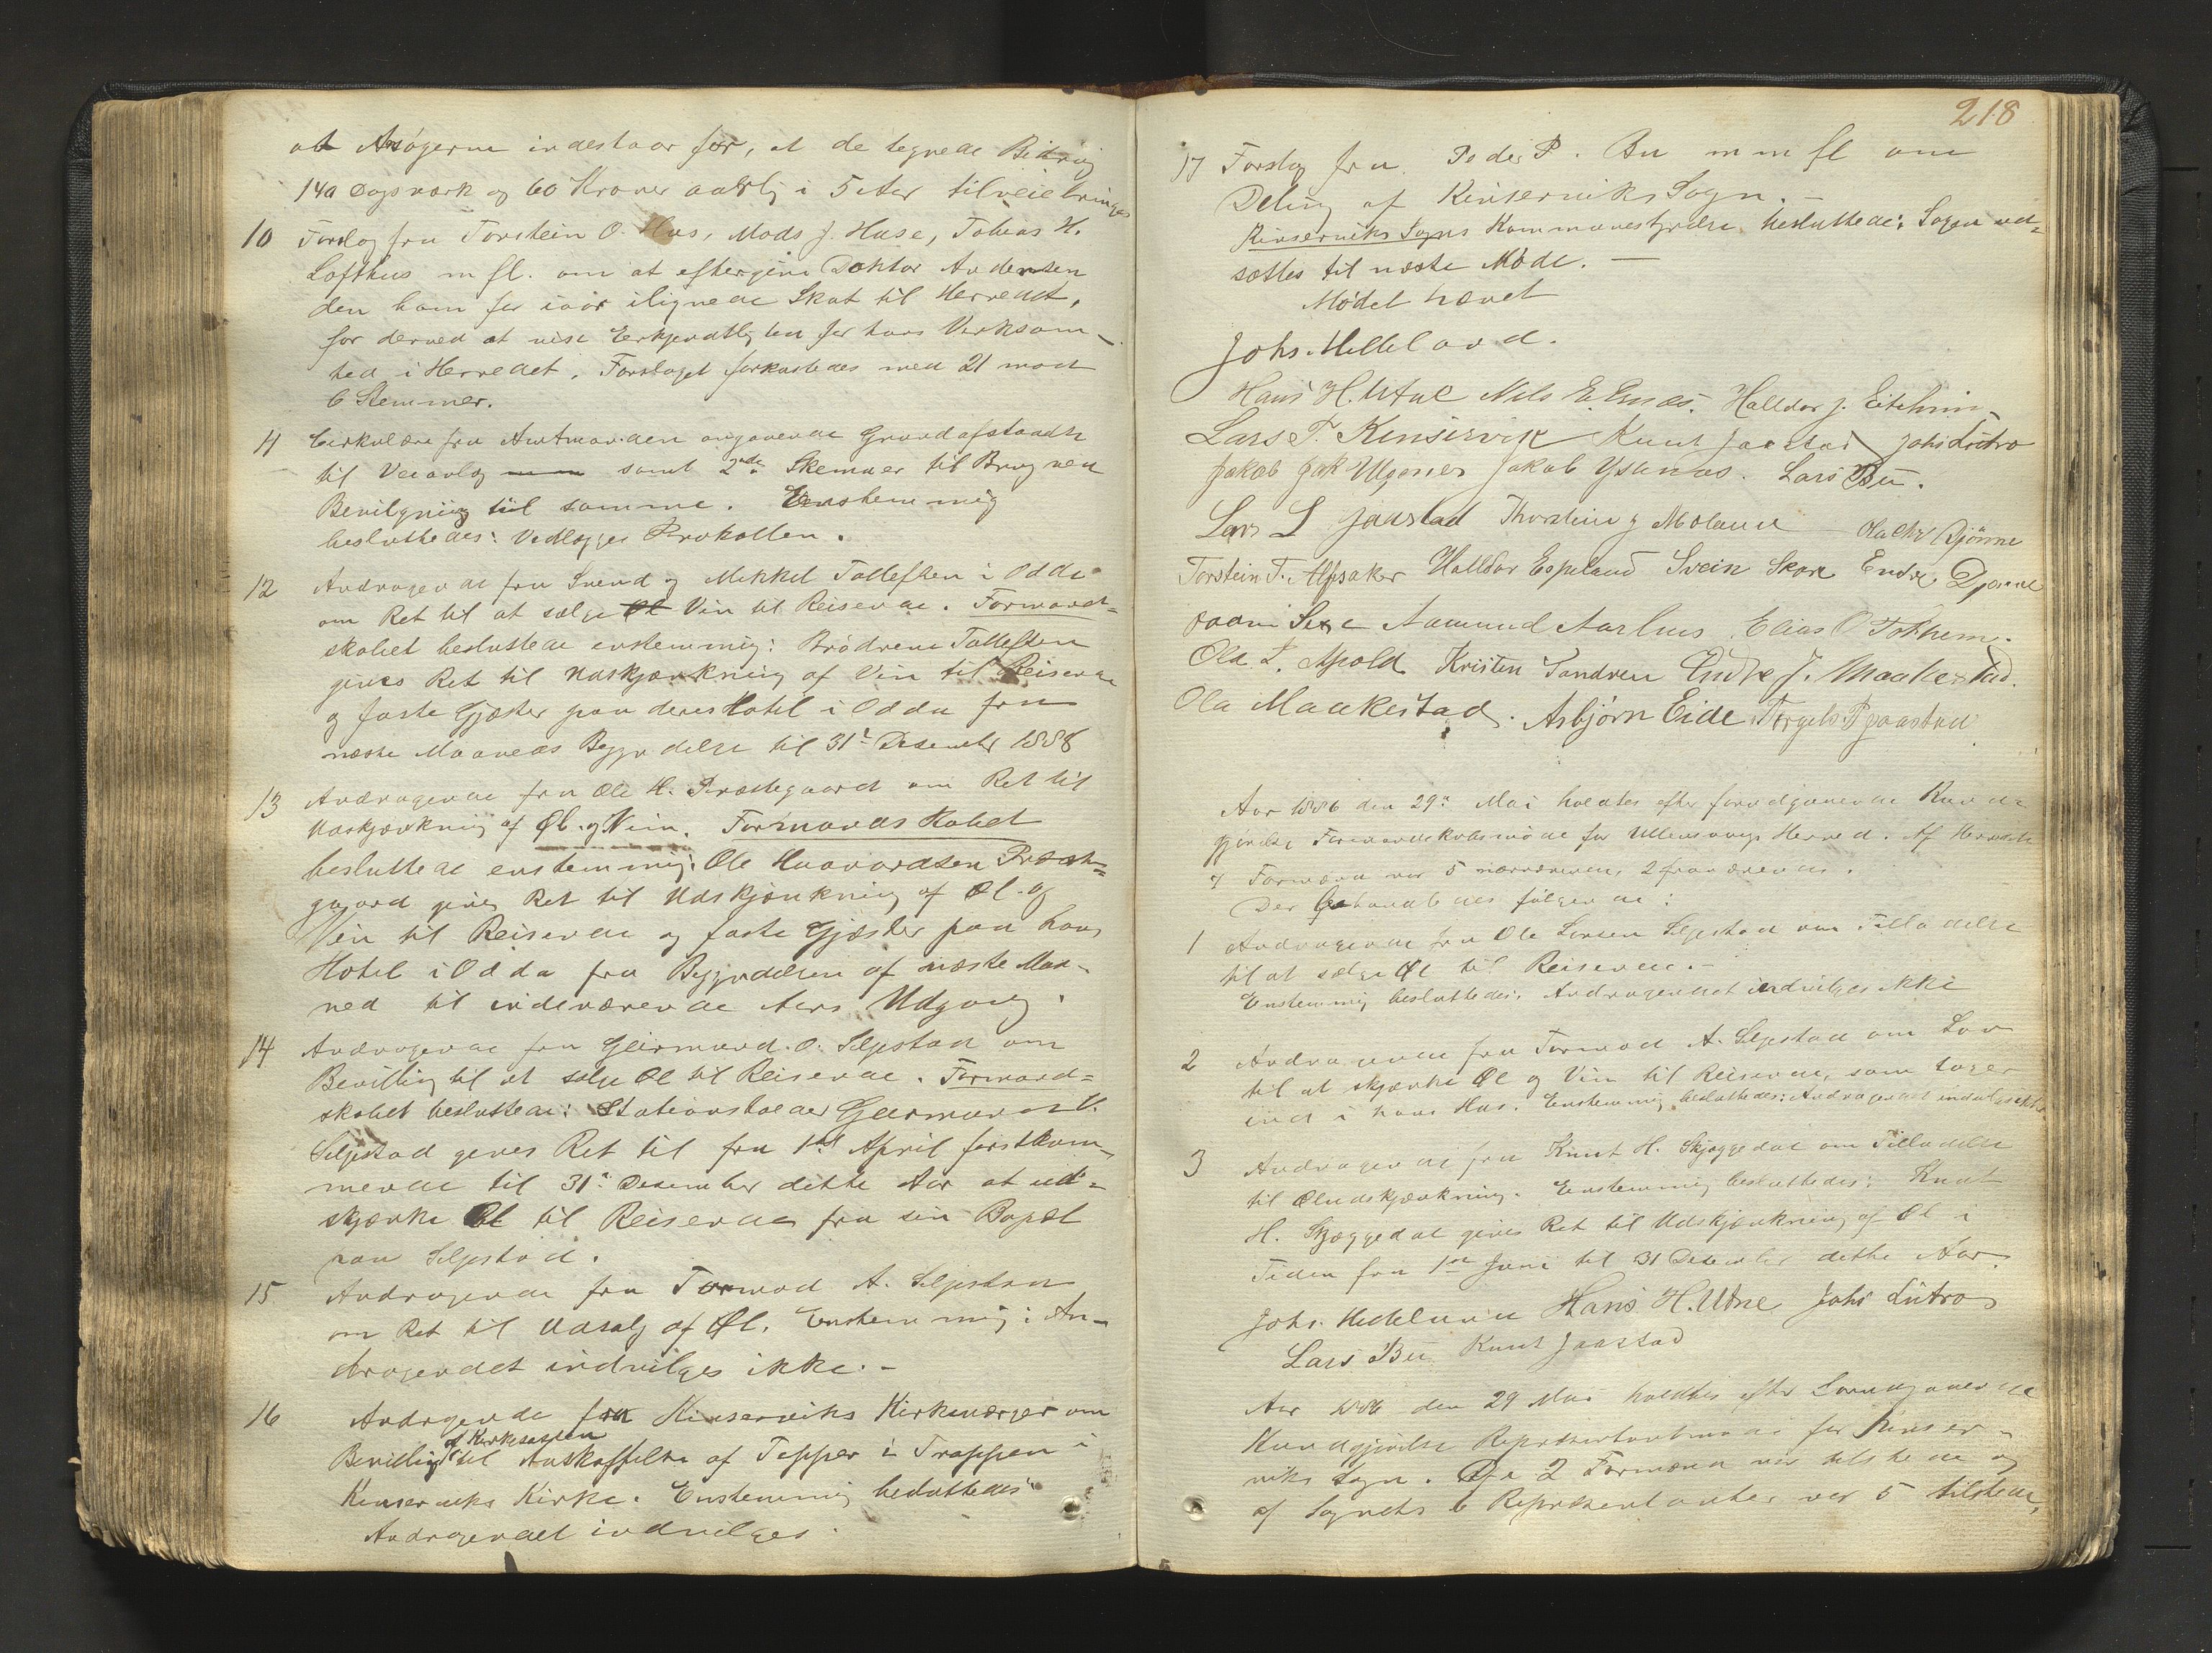 at Ansøgerne indestaar for, at de tegnede Bidrag
140 Dagsværk og 60 Kroner aarlig i 5 Aar tilveiebringes
10 Forslag fra Torstein O. Hus, Mads J. Huse, Tobias H.
Lofthus m fl. om at eftergive Doktor Andersen
den ham for iaar ilignede Skat til Herredet,
for derved at vise Erkjendtligheden for hans Virksom-
hed i Herredet. Forslaget forkastedes med 21 mod
6 Stemmer.
11 Cirkulære fra Amtmanden angaaende Grundafstaaelse
til Veianlæg samt 2de Skemaer til Brug ved
Bevilgning til samme. Enstemmig
besluttedes: Vedlægges Protokollen.
12 Andragende fra Svend og Mikkel Tollefsen i Odda
om Ret til at sælge Øl Vin til Reisende. Formand=
skabet besluttede enstemmig: Brødrene Tollefsen
gives Ret til Udskjænkning af Vin til Reisende
og faste Gjæster paa deres Hotel i Odda fra
næste Maaneds Begyndelse til 31te Desember 1886
13 Andragende fra Ole H. Præstegaard om Ret til
Udskjænkning af Øl. og Vin. Formandskabet
besluttede enstemmig: Ole Haavardsen Præste=
gaard gives Ret til Udskjænkning af Øl. og
Vin til Reisende og faste Gjæster paa hans
Hotel i Odda fra Begyndelsen af næste Maa-
ned til indeværende Aars Udgang.
14 Andragende fra Geirmund O. Seljestad om
Bevilling til at sælge Øl til Reisende. Formand=
skabet besluttede: Stationsholder Geirmund O.
Seljestad gives Ret til fra 1ste April førstkom-
mende til 31te Desember dette Aar at ud=
skjænke Øl til Reisende fra sin Bopæl
paa Seljestad.
15 Andragende fra Tormod A. Seljestad
om Ret til Udsalg af Øl. Enstemmig: An-
dragendet indvilges ikke. -
16 Andragende fra Kinserviks Kirkeværger om
af Kirkekassen
Bevilling til Anskaffelse af Tepper i Trappen i
Kinserviks Kirke. Enstemmig besluttedes:
Andragendet indvilges.
218
17 Forslag fra Peder P. Bu m m fl om
Deling af Kinserviks Sogn. -
Kinserviks Sogns Kommunestyrelse besluttede: Sagen ud=
sættes til næste Møde. -
Mødet hævet
Johs. Meelland.
Hans H. Utne Nils E. Ernæs. Halldor J. Eitrheim
Lars T. Kinservik Knut Jaastad Johs Lutro
Jakob Jak Ulgenes Jakob Ysanas. Lars Bu.
Lars L Jaastad Thorstein J Moland Ola Chr Djønne
Torstein T. Alfsaker Halldor Espeland Svein Skare Endre Djønne
Sexe Aamund Aarhus Elias O Tokheim.
Old. T. Apold Kristen Sandven Endre J. Maakestad.
Ola Maakestad. Asbjørn Eide. Torgels P Jaastad
Aar 1886 den 29de Mai holdtes efter forudgaaende Kund-
gjørelse Formandskabsmøde for Ullensvangs Herred. Af Herredets
7 Formænd var 5 nærværende, 2 fraværende.
Der behandledes følgende:
1 Andragende fra Ole Larsen Seljestad om Tilladelse
til at sælge Øl til Reisende. -
Enstemmig besluttedes: Andragendet indvilges ikke
2 Andragende fra Tormod A. Seljestad om Lov
til at skjænke Øl og Vin til Reisende, som tager
ind i hans Hus. Enstemmig besluttedes: Andragendet indvilges ikke
3 Andragende fra Knut H. Skjæggedal om Tilladelse
til Øludskjænkning. Enstemmig besluttedes: Knut
H. Skjæggedal gives Ret til Udskjænkning af Øl i
Tiden fra 1ste Juni til 31 Desember dette Aar.
Johs. Meelland Hans H. Utne Johs Lutro
Lars Bu Knut Jaastad
Aar 1886 den 29 Mai holdtes efter forudgaaende
Kundgjørelse Repræsentantmøde for Kinser-
viks Sogn. De 2 Formænd var tilstede og
af Sognets 6 Repræsentanter var 5 tilstede,